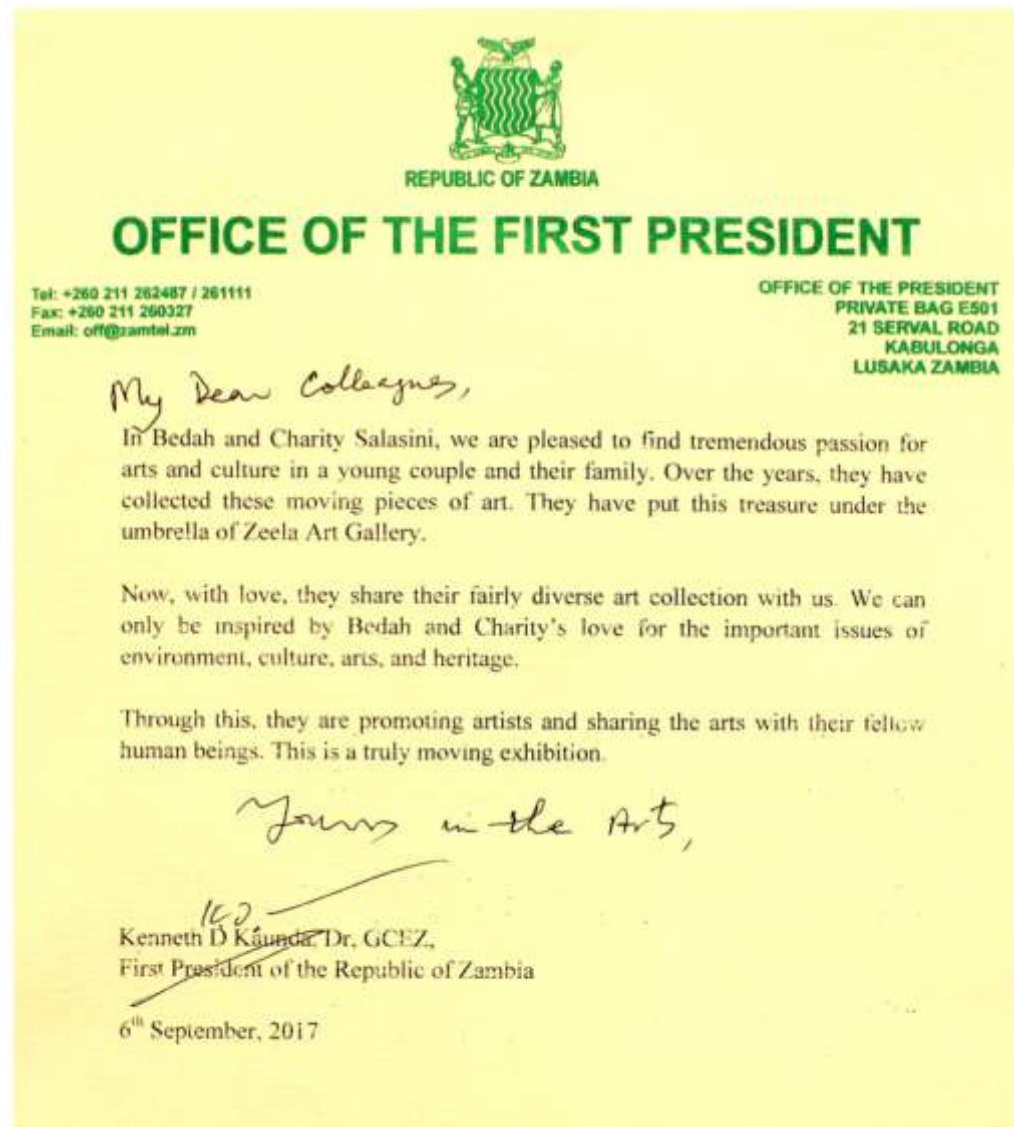 REPUBLIC OF ZAMBIA
OFFICE OF THE FIRST PRESIDENT
Tel: +260 211 262487 / 261111
Fax: +260 211 260327
Email: off@zamtel.zm
OFFICE OF THE PRESIDENT
PRIVATE BAG E501
21 SERVAL ROAD
KABULONGA
LUSAKA ZAMBIA
My Dear Colleagues,
In Bedah and Charity Salasini, we are pleased to find tremendous passion for
arts and culture in a young couple and their family. Over the years, they have
collected these moving pieces of art. They have put this treasure under the
umbrella of Zeela Art Gallery.
Now, with love, they share their fairly diverse art collection with us. We can
only be inspired by Bedah and Charity's love for the important issues of
environment, culture, arts, and heritage.
Through this, they are promoting artists and sharing the arts with their fellow
human beings. This is a truly moving exhibition.
Yours in the Arts,
Kenneth D Kaunda, Dr, GCEZ,
First President of the Republic of Zambia
6th September, 2017